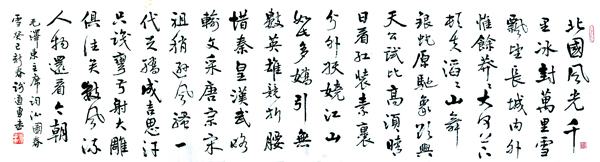 北國風光千
里冰封萬里雪
飄望長城內外
惟餘莽莽大河上下
頓失滔滔山舞
銀蛇原馳蠟象欲與
天公試比高須晴
日看紅裝素裹
分外妖嬈江山
如此多嬌引無
數英雄競折腰
惜秦皇漢武略
輸文采唐宗宋
祖稍遜風騷一
代天驕成吉思汗
只識彎弓射大雕
俱往矣數風流
人物還看今朝
毛澤東主席詞沁園春
雪癸巳新春